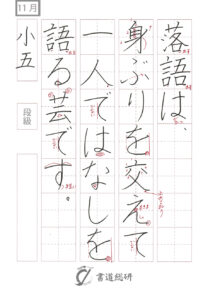 11月
落語は、
身ぶりを交えて
一人ではなしを
語る芸です。
小五
段級
書道総研